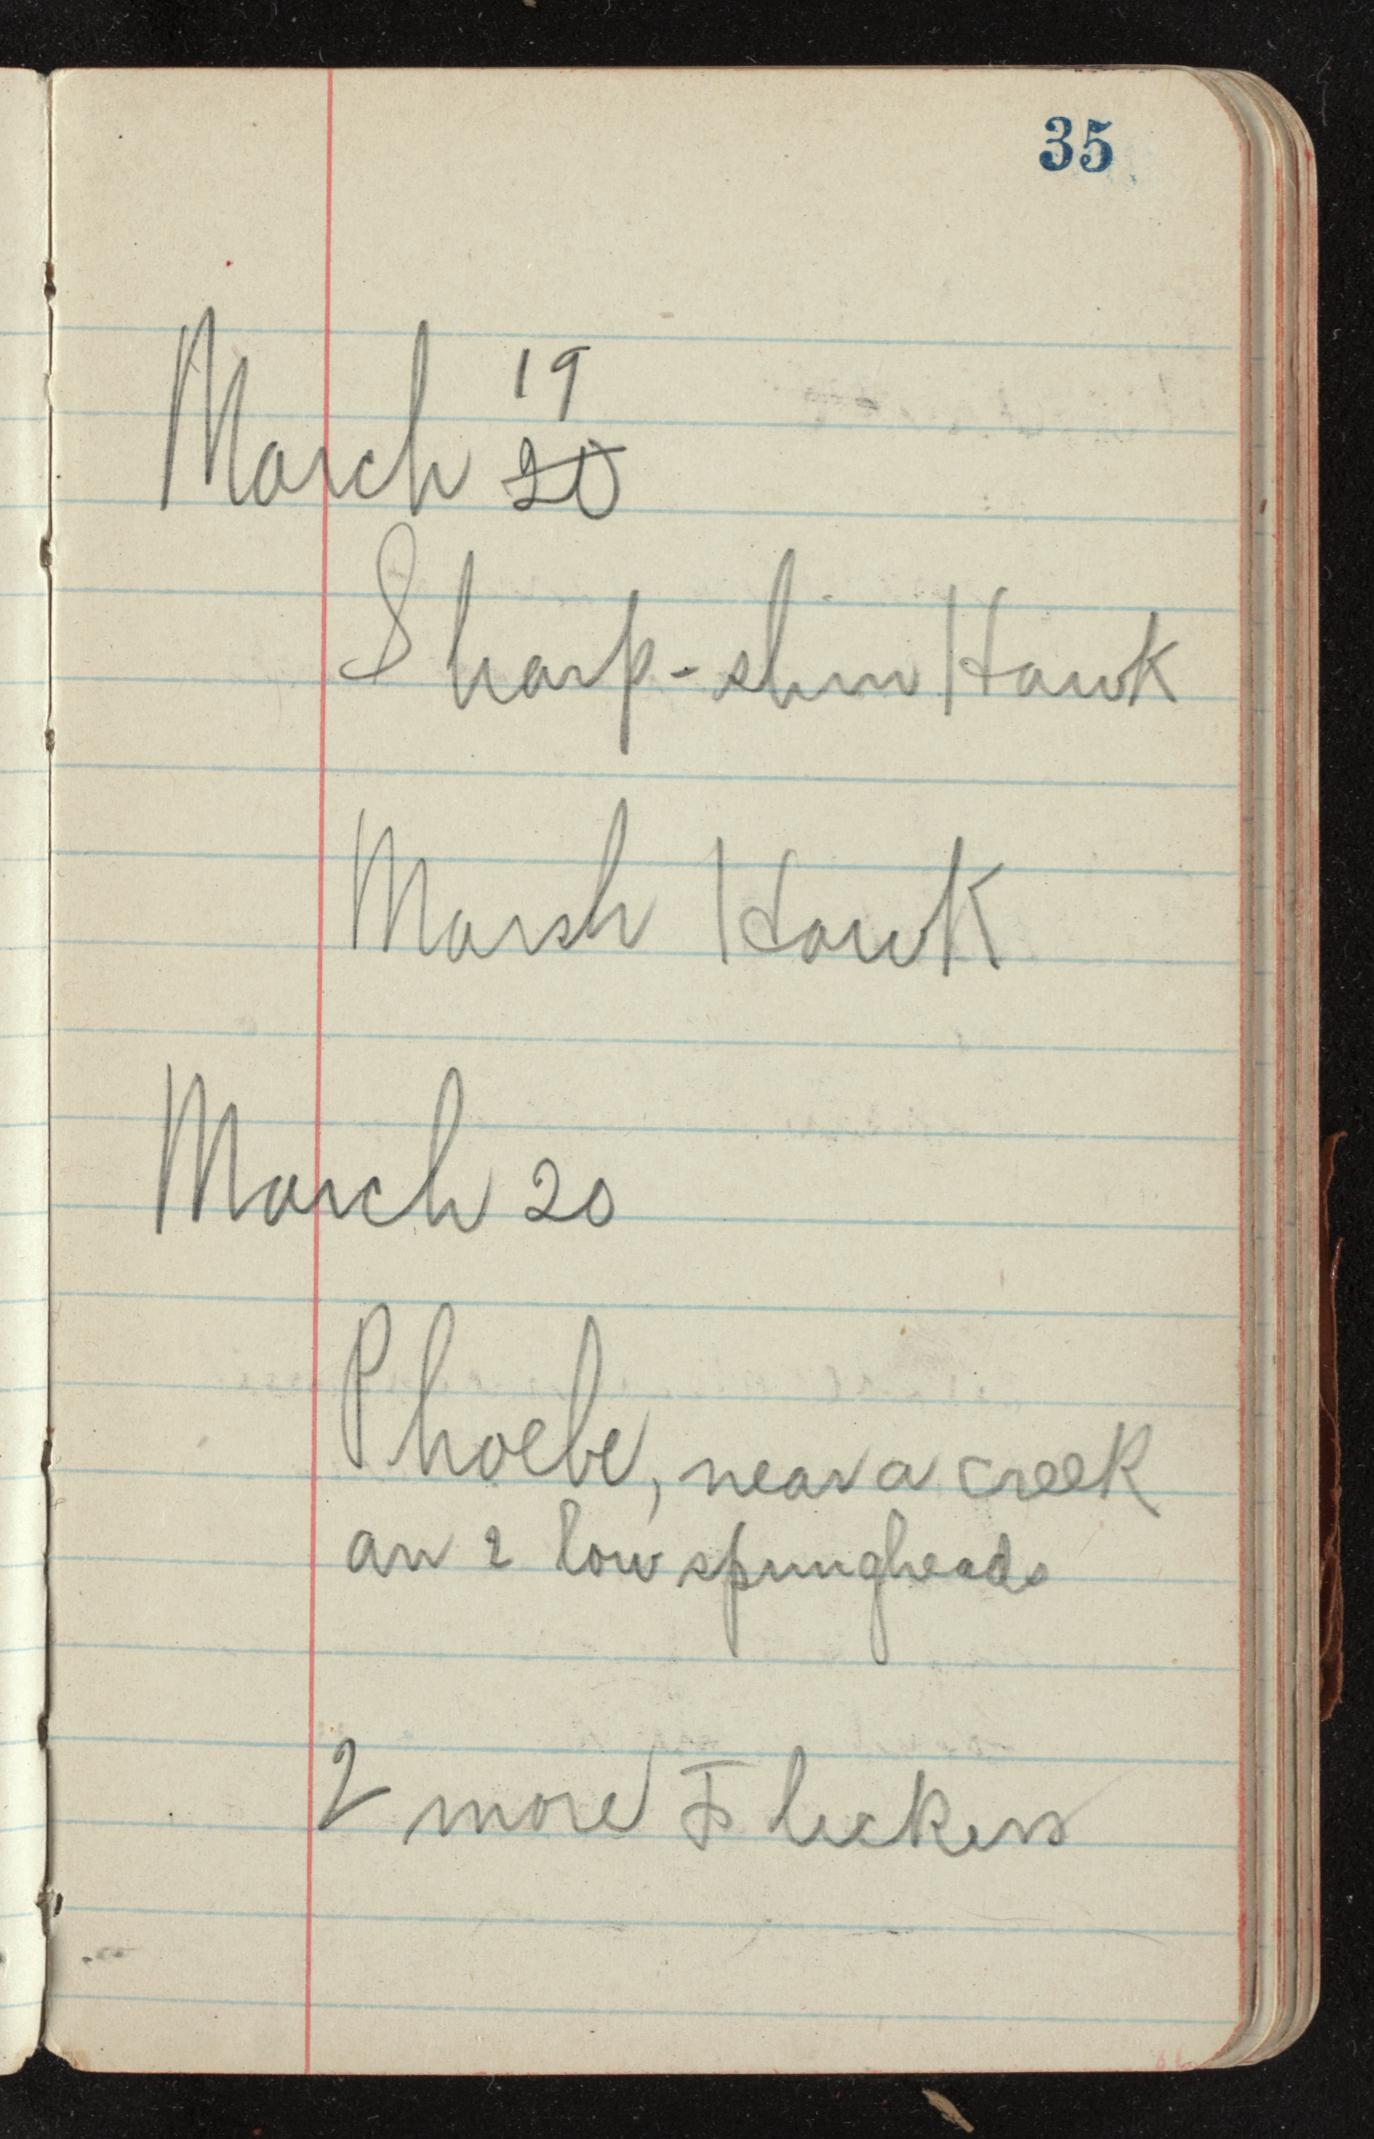 35
March 19
20
Sharp-shin Hawk
Marsh Hawk
March 20
Phoebe, near a creek
an 2 low springheads
2 more Flickers